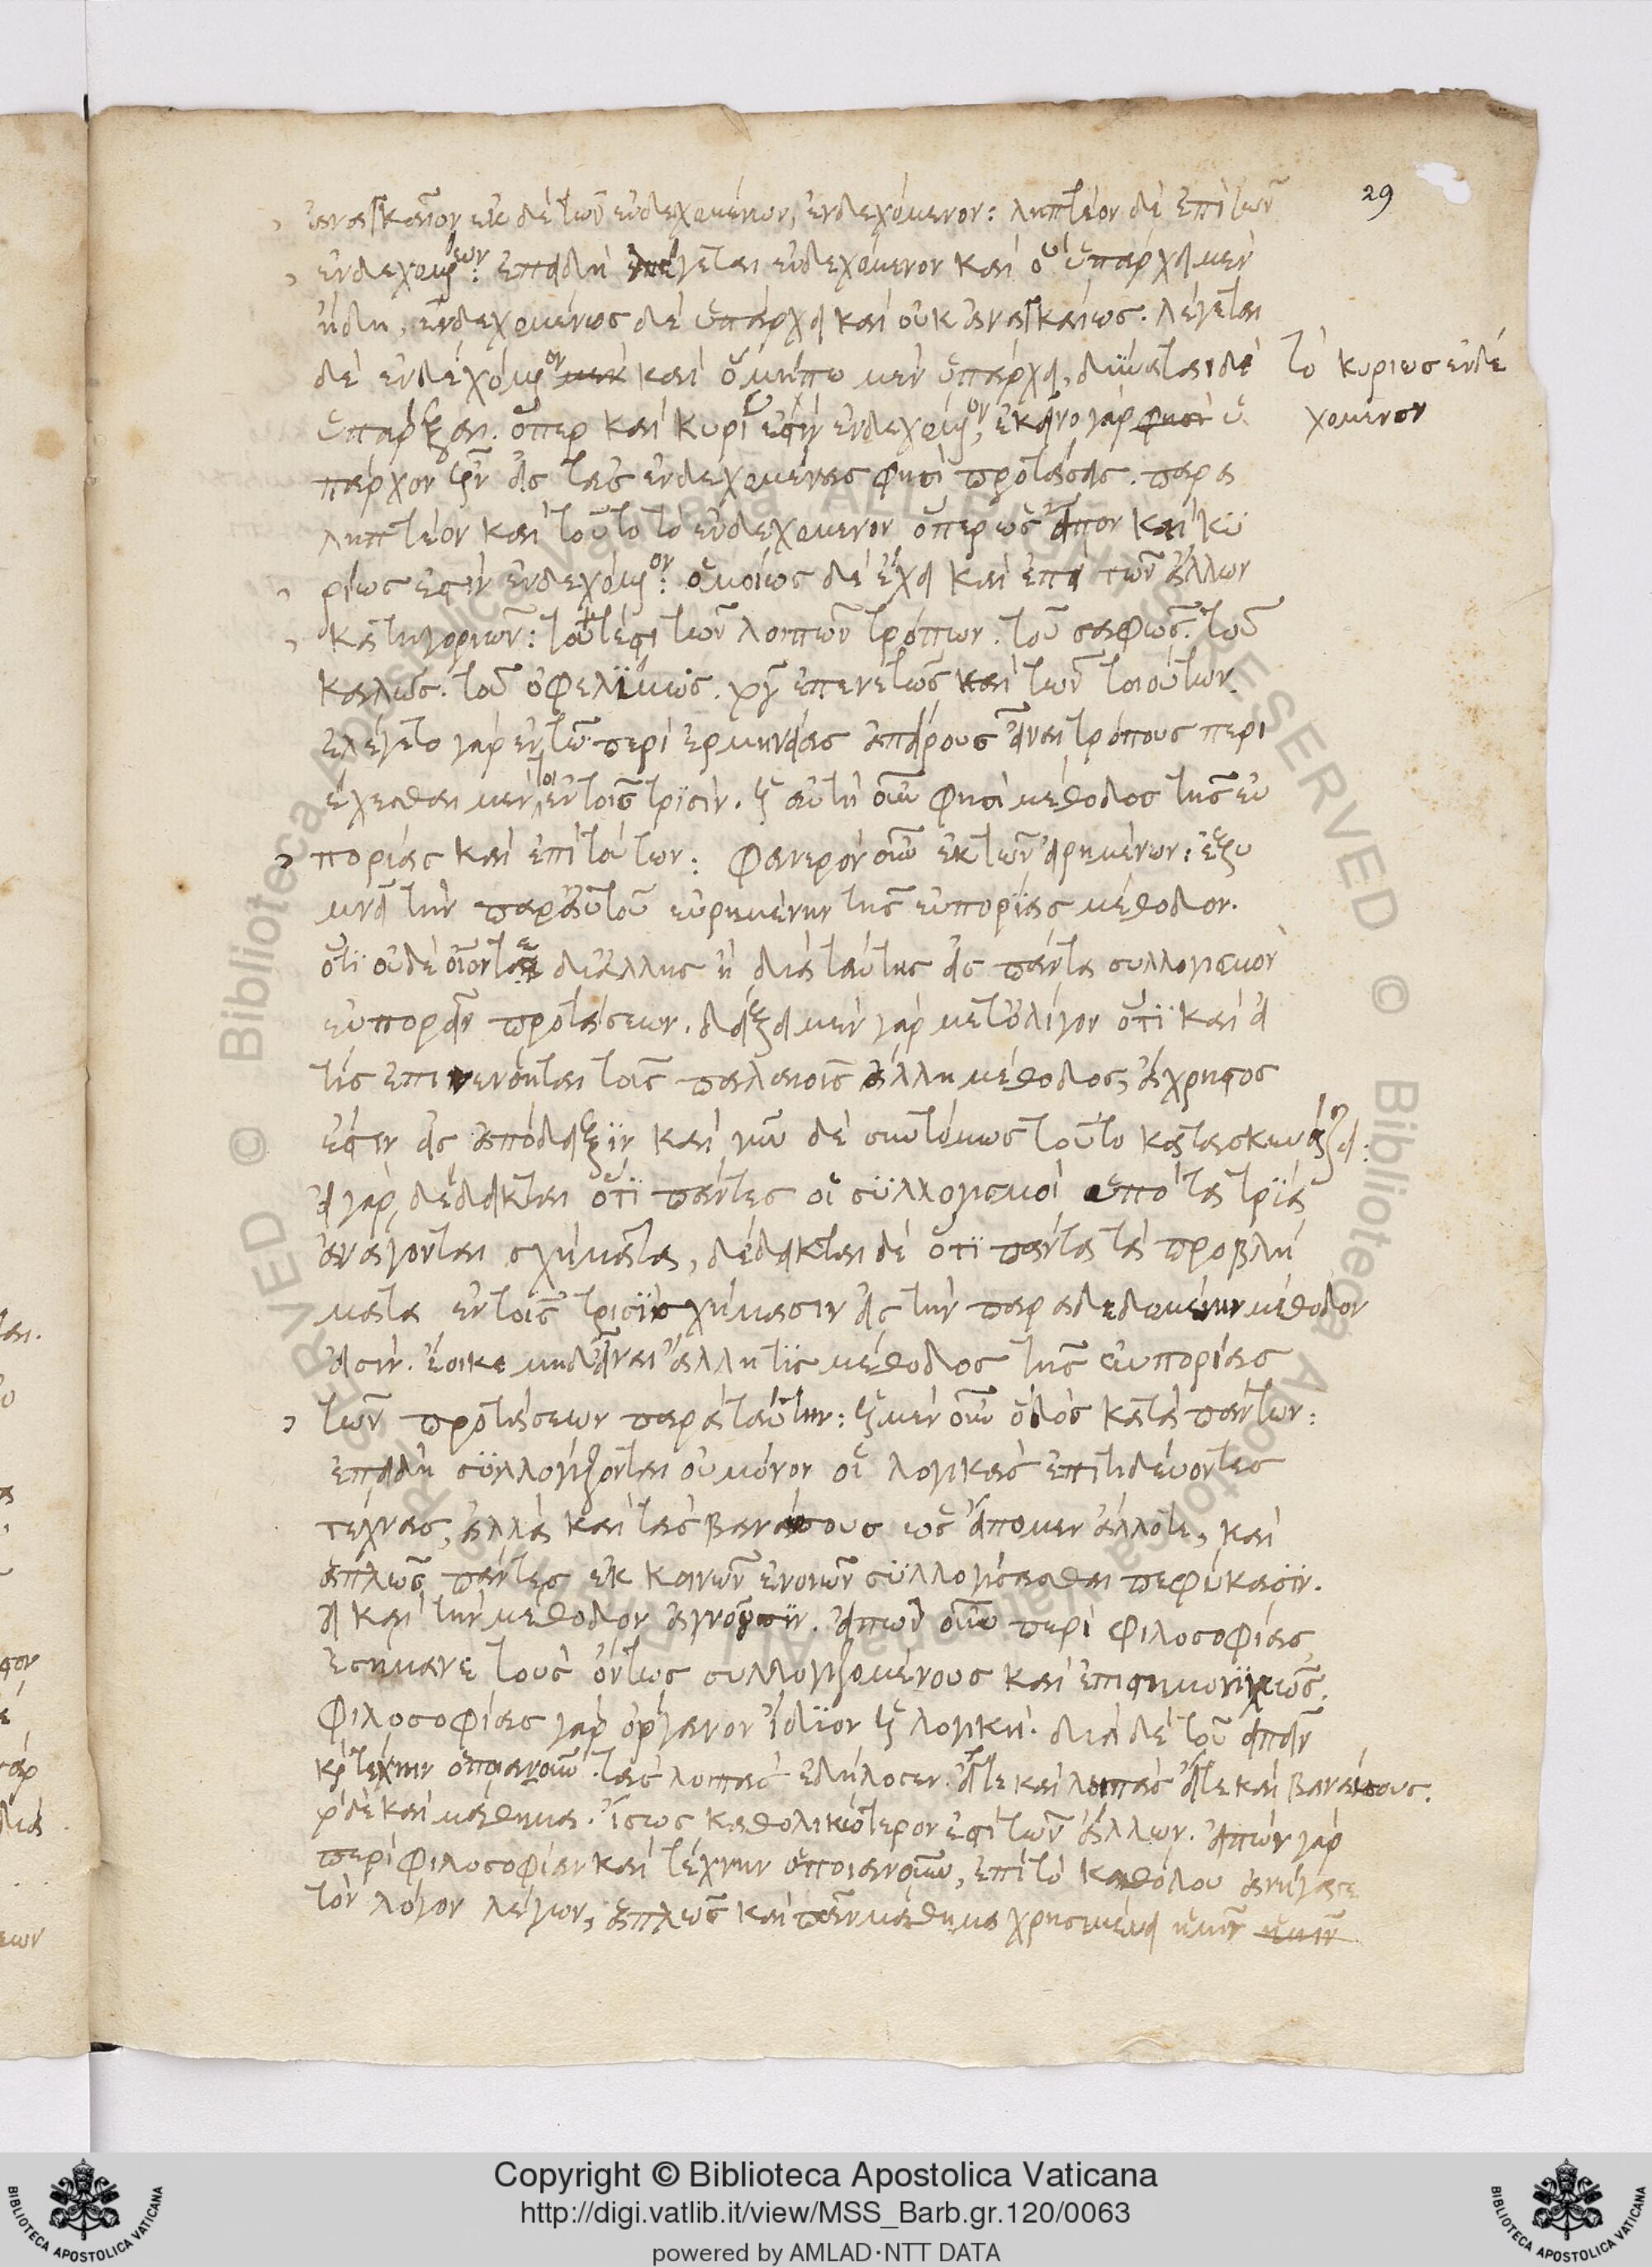 29
ἀναγκαῖον ἐκ δὲ τῶν ἐνδεχομένων, ἐνδεχόμενον: ληπτέον δὲ ἐπὶ τῶν
ἐνδεχομένων: ἐπειδὴ λέγεται ἐνδεχόμενον καὶ ὃ ὑπάρχει μὲν
ἤδη, ἐνδεχομένως δὲ ὑπάρχει καὶ οὐκ ἀναγκαίως. λέγεται
δὲ ἐνδεχόμενον καὶ ὃ μήπω μὲν ὑπάρχει, δύναται δὲ
ὑπάρξαι. ὅπερ καὶ κυρίως ἐστὶν ἐνδεχόμενον, ἐκεῖνο γὰρ ὑ
πάρχον ἦν εἰς τὰς ἐνδεχομένας φησὶ προτάσεις. παρα
ληπτέον καὶ τοῦτο τὸ ἐνδεχόμενον ὅπερ ὡς εἶπον καὶ κυ
ρίως ἐστὶν ἐνδεχόμενον: ὁμοίως δὲ ἔχει καὶ ἐπὶ τῶν ἄλλων
κατηγοριῶν: τουτέστι τῶν λοιπῶν τρόπων. τοῦ σαφῶς. τοῦ
καλῶς. τοῦ ὀφελίμως. ἐπενετῶς καὶ τῶν τοιούτων.
ἐλέγετο γὰρ ἐν τῶ περὶ ἑρμηνείας ἀπείρους εἶναι τρόπους περι
έχεσθαι μέντοι ἐν τοῖς τρισίν. ἡ αὐτὴ οὖν φησὶ μέθοδος τῆς εὐ
πορίας καὶ ἐπὶ τούτων: φανερὸν οὖν ἐκ τῶν εἰρημένων: ἐξυ
μνεῖ τὴν παρ' αὐτοῦ εὑρημένην τῆς εὐπορίας μέθοδον.
ὅτι οὐδὲ οἷόν τε δι' ἄλλης ἢ διὰ ταύτης εἰς πάντα συλλογισμὸν
εὐπορεῖν προτάσεων. δείξει μὲν γὰρ μετ' ὀλίγον ὅτι καὶ εἴ
τις ἐπινενόηται τοῖς παλαιοῖς ἄλλη μέθοδος, ἄχρηστος
ἐστιν εἰς ἀπόδειξιν καὶ νῦν δὲ συντόμως τοῦτο κατασκευάζει:
εἰ γὰρ, δέδεικται ὅτι πάντες οἱ συλλογισμοὶ ὑπὸ τὰ τρία
ἀνάγονται σχήματα, δέδεικται δὲ ὅτι πάντα τὰ προβλή
ματα ἐν τοῖς τρισὶ σχήμασιν εἰς τὴν παραδεδομένην μέθοδον
εἰσιν. ἔοικε μηδ' εἶναι ἄλλη τὶς μέθοδος τῆς εὐπορίας
τῶν προτάσεων παρὰ ταύτην: ἡ μὲν οὖν ὁδὸς κατὰ πάντων:
ἐπειδὴ συλλογίζονται οὐ μόνον οἱ λογικὰς ἐπιτηδεύοντες
τέχνας, ἀλλὰ καὶ τὰς βαναύσους ὡς εἴπομεν ἄλλοτε, καὶ
ἁπλῶς πάντες ἐκ κοινῶν ἐννοιῶν συλλογίσασθαι πεφύκασιν.
εἰ καὶ τὴν μέθοδον ἀγνοοῦσιν. εἰπὼν οὖν περὶ φιλοσοφίας,
ἐσήμανε τοὺς ὄντως συλλογιζομένους καὶ ἐπιστημονικῶς.
φιλοσοφίας γὰρ ὄργανον ἴδιον ἡ λογική. διὰ δὲ τοῦ εἰπεῖν
καὶ τέχνην ὁποιανοῦν. τὰς λοιπὰς ἐδήλοσεν. εἴτε καὶ λοιπὰς εἴτε καὶ βαναύσους.
δὲ καὶ μάθημα. ἴσως καθολικώτερον ἐστὶ τῶν ἄλλων. εἰπὼν γὰρ
περὶ φιλοσοφίαν καὶ τέχνην ὁποιανοῦν, ἐπὶ τὸ καθόλου ἀνήγαγε
τὸν λόγον λέγων, ἁπλῶς καὶ πᾶν μάθημα χρησιμεύει ἡμῖν
τὸ κυρίως ἐνδε
χόμενον
Copyright © Biblioteca Apostolica Vaticana
http://digi.vatlib.it/view/MSS_Barb.gr.120/0063
powered by AMLAD·NTT DATA